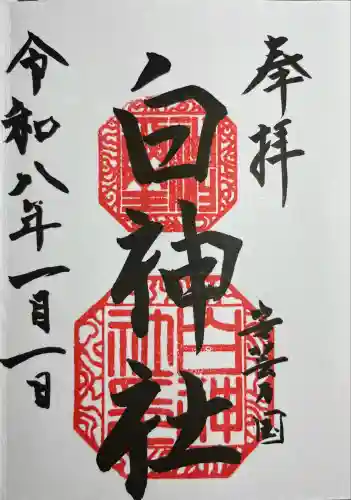 奉拝
安芸乃国
白神社
令和八年一月一日